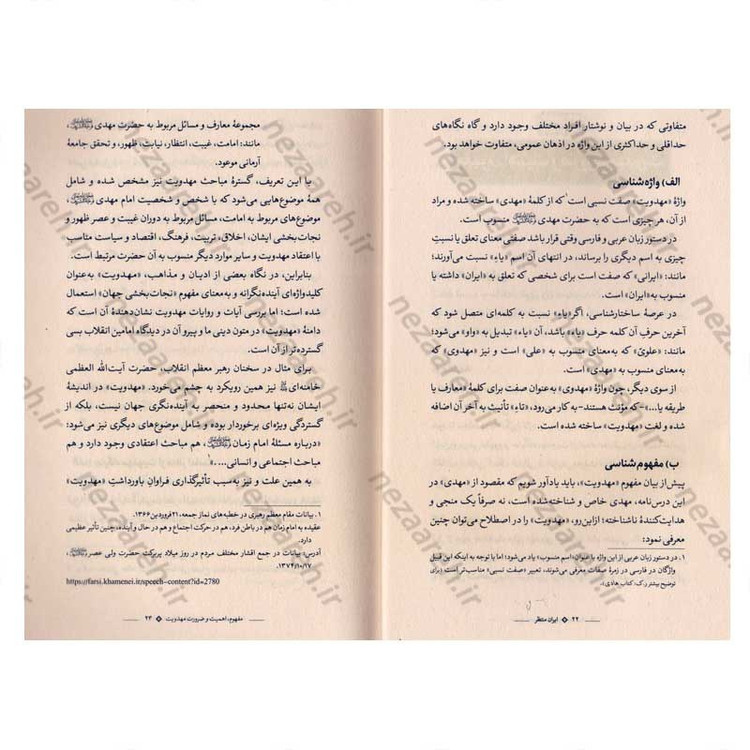 متفاوتی که در بیان و نوشتار افراد مختلف وجود دارد و گاه نگاه‌های
حداقلی و حداکثری از این واژه در اذهان عمومی، متفاوت خواهد بود.
الف) واژه‌شناسی
واژهٔ «مهدویت» صفت نسبی است¹ که از کلمهٔ «مهدی» ساخته شده و مراد
از آن، هر چیزی است که به حضرت مهدی منسوب است.
در دستور زبان عربی و فارسی وقتی قرار باشد صفتی معنای تعلق یا نسبتِ
چیزی به اسم دیگری را برساند، در انتهای آن اسم «یاء» نسبت می‌آورند؛
مانند: «ایرانی» که صفت است برای شخصی که تعلق به «ایران» داشته یا
منسوب به «ایران» است.
در عرصهٔ ساختارشناسی، اگر «یاء» نسبت به کلمه‌ای متصل شود که
آخرین حرفِ آن کلمه حرف «یاء» باشد، آن «یاء» تبدیل به «واو» می‌شود؛
مانند: «علویّ» که به‌معنای منسوب به «علی» است و نیز «مهدوی» که
به‌معنای منسوب به «مهدی» است.
از سوی دیگر، چون واژهٔ «مهدوی» به‌عنوان صفت برای کلمهٔ «معارف یا
طریقه یا...» -که مؤنث هستند- به کار می‌رود، «تاءِ» تأنیث به آخر آن اضافه
شده و لغت «مهدویت» ساخته شده است.
ب) مفهوم‌شناسی
پیش از بیان مفهوم «مهدویت»، باید یادآور شویم که مقصود از «مهدی» در
این درس‌نامه، مهدی خاص و شناخته‌شده است، نه صرفاً یک منجی و
هدایت‌کنندهٔ ناشناخته؛ ازاین‌رو، «مهدویت» را در اصطلاح می‌توان چنین
معرفی نمود:
۱. در دستور زبان عربی از این واژه با عنوان «اسم منسوب» یاد می‌شود؛ اما با توجه به اینکه این قبیل
واژگان در فارسی در زمرهٔ صفات معرفی می‌شوند، تعبیر «صفت نسبی» مناسب‌تر است (برای
توضیح بیشتر ر.ک: کتاب هادی).
۲۲ ایران منتظر
مجموعهٔ معارف و مسائل مربوط به حضرت مهدی ،
مانند: امامت، غیبت، انتظار، نیابت، ظهور، و تحقق جامعهٔ
آرمانی موعود.
با این تعریف، گسترهٔ مباحث مهدویت نیز مشخص شده و شامل
همهٔ موضوع‌هایی می‌شود که با شخص و شخصیت امام مهدی ،
موضوع‌های مربوط به امامت، مسائل مربوط به دوران غیبت و عصر ظهور و
نجات‌بخشی ایشان، اخلاق، تربیت، فرهنگ، اقتصاد و سیاست مناسب
با اعتقاد مهدویت و سایر موارد دیگر منسوب به آن حضرت مرتبط است.
بنابراین، در نگاه بعضی از ادیان و مذاهب، «مهدویت» به‌عنوان
کلیدواژه‌ای آینده‌نگرانه و به‌معنای مفهوم «نجات‌بخشی جهان» استعمال
شده است؛ اما بررسی آیات و روایات مهدویت نشان‌دهندهٔ آن است که
دامنهٔ «مهدویت» در متون دینی ما و پیرو آن در دیدگاه امامین انقلاب بسی
گسترده‌تر از آن است.
برای مثال در سخنان رهبر معظم انقلاب، حضرت آیت‌الله العظمی
خامنه‌ای نیز همین رویکرد به چشم می‌خورد. «مهدویت» در اندیشهٔ
ایشان نه‌تنها محدود و منحصر به آینده‌نگری جهان نیست، بلکه از
گستردگی ویژه‌ای برخوردار بوده و شامل موضوع‌های دیگری نیز می‌شود:
«درباره مسئلهٔ امام زمان ، هم مباحث اعتقادی وجود دارد و هم
مباحث اجتماعی و انسانی....»¹
به همین علت و نیز به‌سبب تأثیرگذاری فراوانِ باورداشتِ «مهدویت»
۱. بیانات مقام معظم رهبری در خطبه‌های نماز جمعه، ۲۱ فروردین ۱۳۶۶.
عقیده به امام زمان هم در باطن فرد، هم در حرکت اجتماع و هم در حال و آینده، چنین تأثیر عظیمی
دارد.
آدرس: بیانات در جمع اقشار مختلف مردم در روز میلاد پربرکت حضرت ولی عصر ،
۱۳۷۴/۱۰/۱۷.
https://farsi.khamenei.ir/speech-content?id=2780
مفهوم، اهمیت و ضرورت مهدویت ۲۳
nezaareh.ir